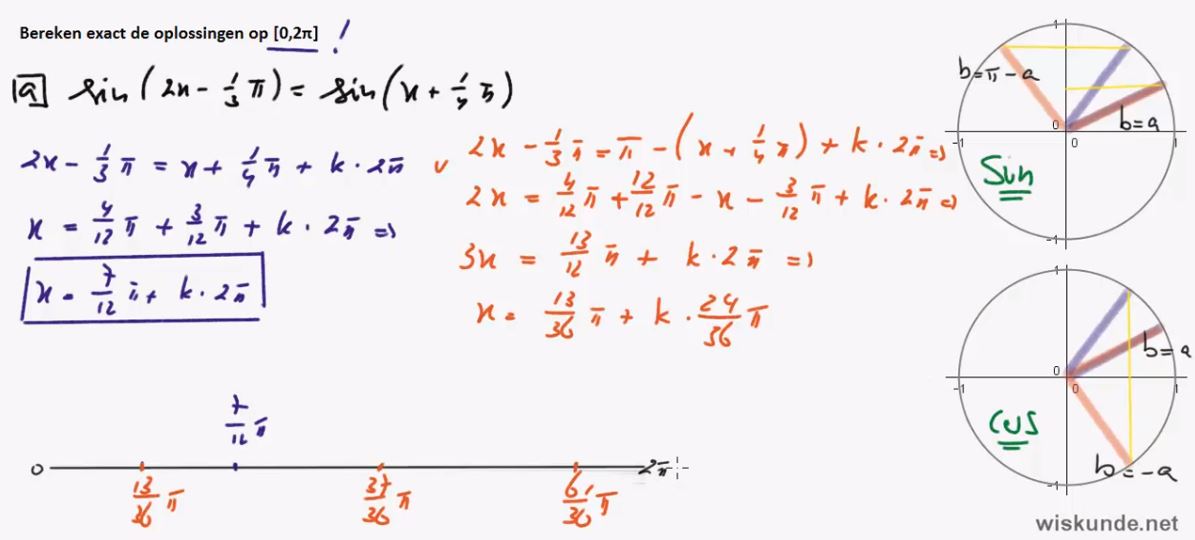 Bereken exact de oplossingen op [0,2π] !
a sin(2x - 1/3 π) = sin(x + 1/4 π)
2x - 1/3 π = x + 1/4 π + k · 2π v
x = 4/12 π + 3/12 π + k · 2π =>
x = 7/12 π + k · 2π
2x - 1/3 π = π - (x + 1/4 π) + k · 2π =>
2x = 4/12 π + 12/12 π - x - 3/12 π + k · 2π =>
3x = 13/12 π + k · 2π =>
x = 13/36 π + k · 24/36 π
7/12 π
0 2π
13/36 π 37/36 π 61/36 π
1
b = π - a
b = a
-1 0 0 1
Sin
-1
1
b = a
-1 0 0 1
cos
b = -a
-1
wiskunde.net